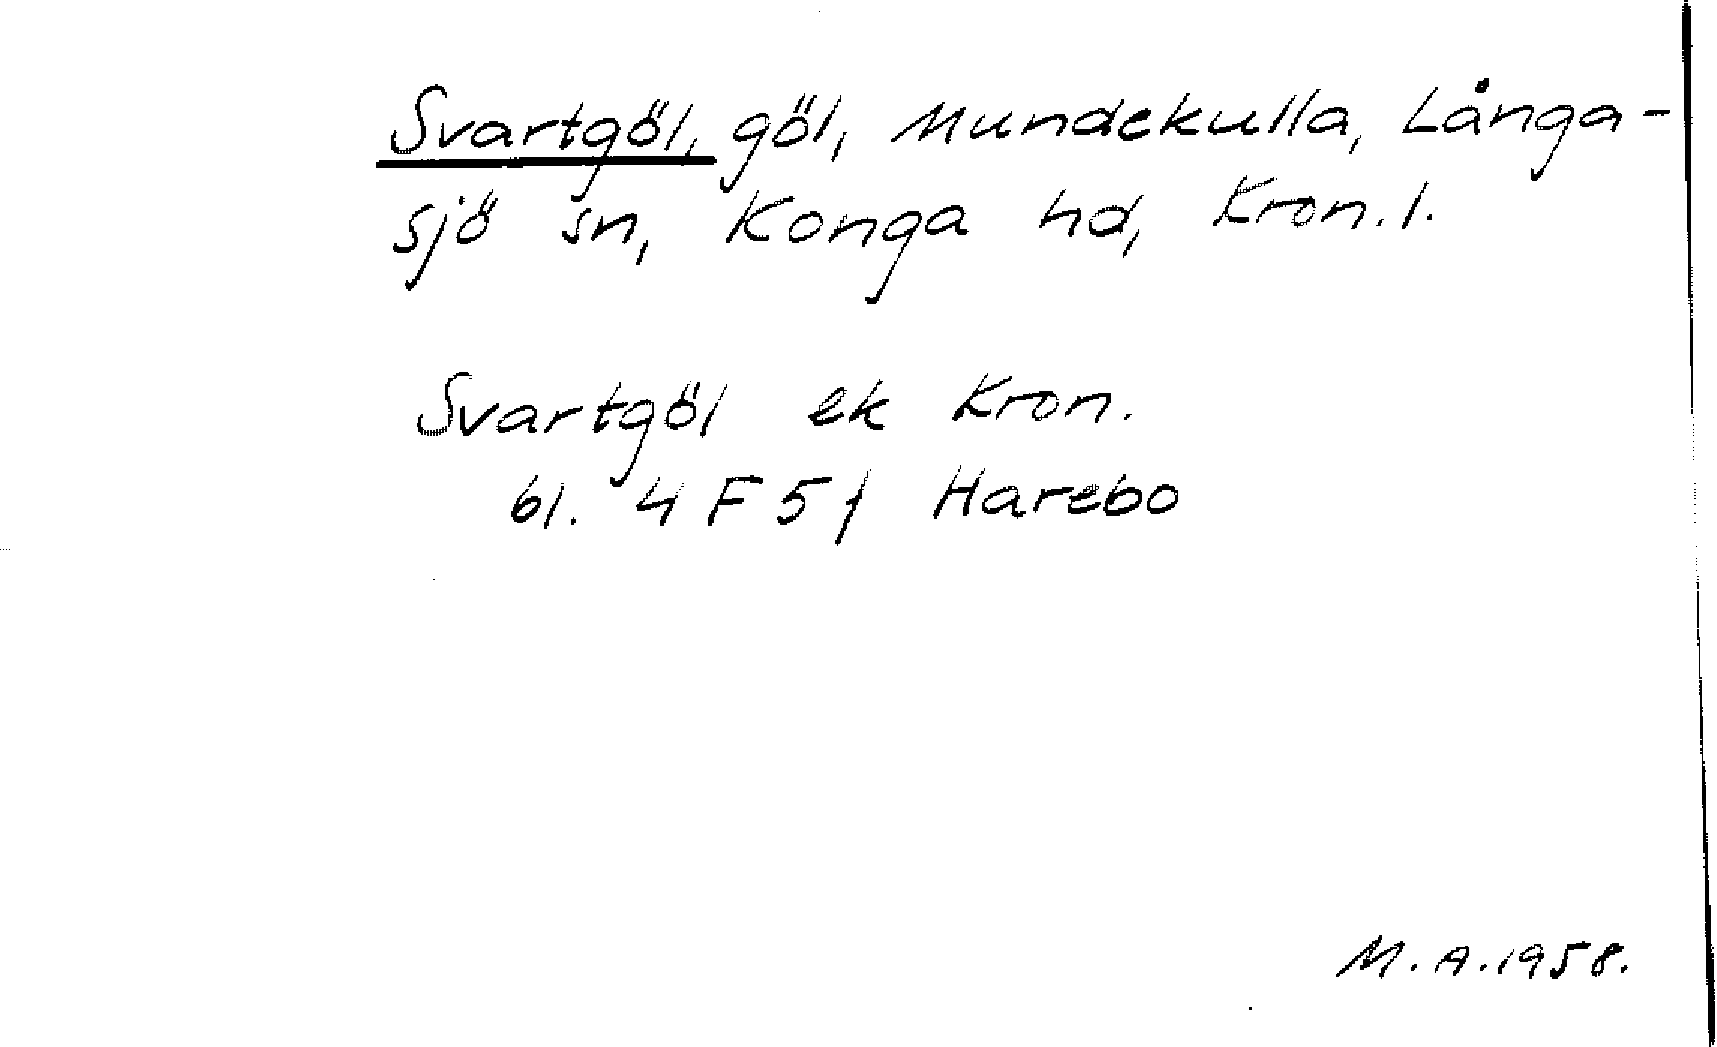 Svartgöl, göl, Mundekulla, Långa-
sjö sn, Konga hd, Kron. l.
Svartgöl ek Kron.
bl. 4 F 5 f Harebo
M. A. 1958.